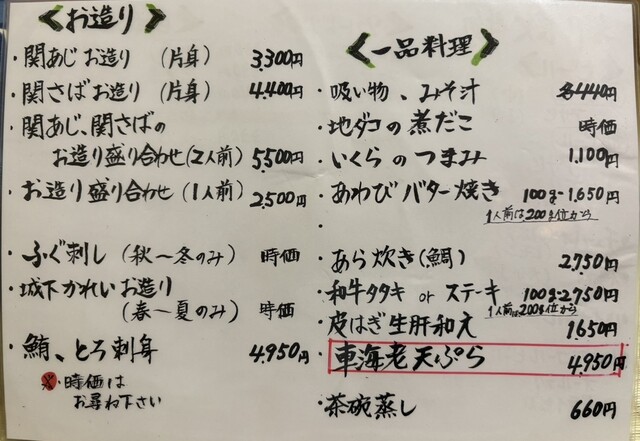 お造り
・関あじお造り（片身） 3,300円
・関さばお造り（片身） 4,400円
・関あじ、関さばの
お造り盛り合わせ（2人前） 5,500円
・お造り盛り合わせ（1人前） 2,500円
・ふぐ刺し（秋〜冬のみ） 時価
・城下かれいお造り
（春〜夏のみ） 時価
・鮪、とろ刺身 4,950円
※時価は
お尋ね下さい
一品料理
・吸い物、みそ汁 各440円
・地ダコの煮だこ 時価
・いくらのつまみ 1,100円
・あわびバター焼き 100g-1,650円
1人前は、200g位から
・
・あら炊き（鯛） 2,750円
・和牛タタキ or ステーキ 100g-2,750円
1人前は200g位から
・皮はぎ生肝和え 1,650円
・車海老天ぷら 4,950円
・茶碗蒸し 660円